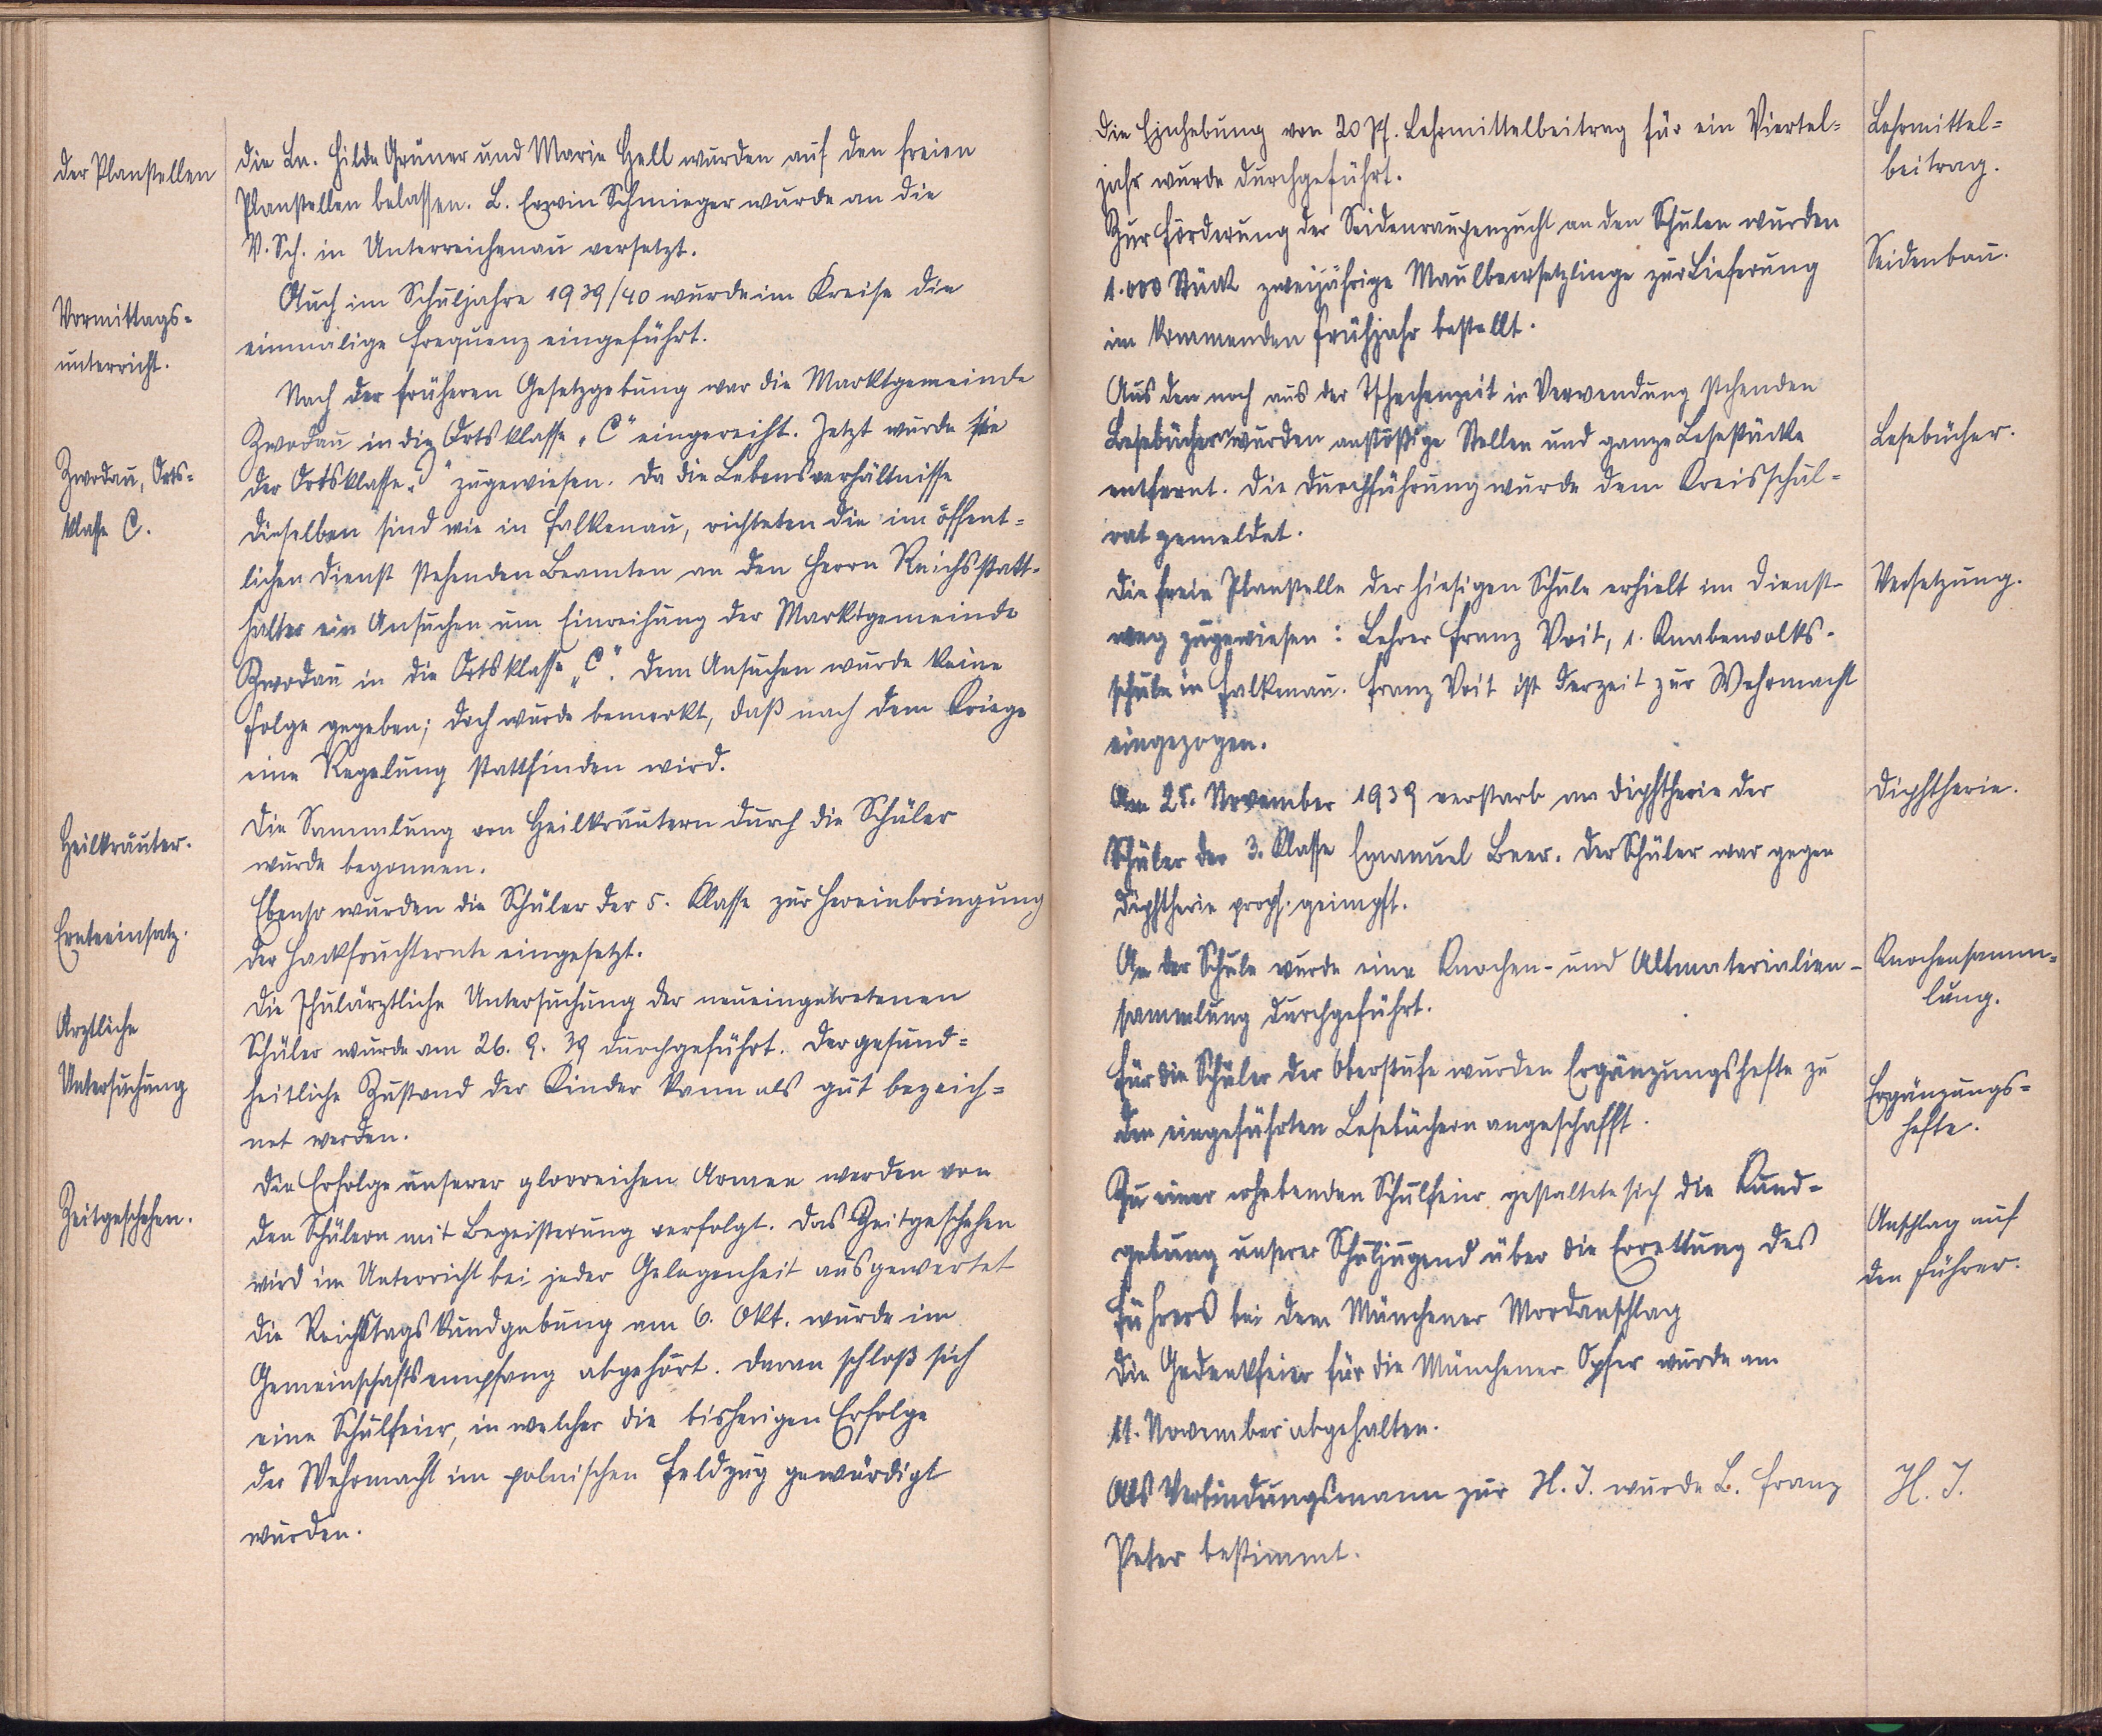 der Planstellen
Die Ln. Hilde Grüner und Marie Hell wurden auf den freien
Planstellen belassen. L. Erwin Schmieger wurde an die
V. Sch. in Unterreichenau versetzt.
Vormittags=
unterricht.
Auch im Schuljahre 1939/40 wurde im Kreise die
einmalige Frequenz eingeführt.
Nach der früheren Gesetzgebung war die Marktgemeinde
Zwodau in die Ortsklasse „C" eingereiht. Jetzt wurde sie
Zwodau, Orts=
klasse C.
der Ortsklasse „ " zugewiesen. Da die Lebensverhältnisse
dieselben sind wie in Falkenau, richteten die im öffent=
lichen Dienst stehenden Beamten an den Herrn Reichsstatt=
halter ein Ansuchen um Einreihung der Marktgemeinde
Zwodau in die Ortsklasse „C". Dem Ansuchen wurde keine
Folge gegeben; doch wurde bemerkt, daß nach dem Kriege
eine Regelung stattfinden wird.
Heilkräuter.
Die Sammlung von Heilkräutern durch die Schüler
wurde begonnen.
Ernteeinsatz.
Ebenso wurden die Schüler der 5. Klasse zur Hereinbringung
der Hackfruchternte eingesetzt.
Ärztliche
Untersuchung
Die schulärztliche Untersuchung der neueingetretenen
Schüler wurde am 26. 9. 39 durchgeführt. Der gesund=
heitliche Zustand der Kinder kann als gut bezeich=
net werden.
Zeitgeschehen.
Die Erfolge unserer glorreichen Armee werden von
den Schülern mit Begeisterung verfolgt. Das Zeitgeschehen
wird im Unterricht bei jeder Gelegenheit ausgewertet
Die Reichstagskundgebung am 6. Okt. wurde im
Gemeinschaftsempfang abgehört. Daran schloß sich
eine Schulfeier, in welcher die bisherigen Erfolge
der Wehrmacht im polnischen Feldzug gewürdigt
wurden.
Die Einhebung von 20 Pf. Lehrmittelbeitrag für ein Viertel=
jahr wurde durchgeführt.
Lehrmittel=
beitrag.
Zur Förderung der Seidenraupenzucht an den Schulen wurden
1.000 Stück zweijährige Maulbeersetzlinge zur Lieferung
im kommenden Frühjahr bestellt.
Seidenbau.
Aus den noch aus der Tschechenzeit in Verwendung stehenden
Lesebüchern wurden anstößige Stellen und ganze Lesestücke
entfernt. Die Durchführung wurde dem Kreisschul=
rat gemeldet.
Lesebücher.
Die freie Planstelle der hiesigen Schule erhielt im Dienst-
weg zugewiesen: Lehrer Franz Voit, 1. Knabenvolks-
schule in Falkenau. Franz Voit ist derzeit zur Wehrmacht
eingezogen.
Versetzung.
Am 25. November 1939 verstarb an Diphtherie der
Schüler der 3. Klasse Emanuel Beer. Der Schüler war gegen
Diphtherie proph. geimpft.
Diphtherie.
An der Schule wurde eine Knochen- und Altmaterialien-
sammlung durchgeführt.
Knochensamm=
lung.
Für die Schüler der Oberstufe wurden Ergänzungshefte zu
den eingeführten Lesebüchern angeschafft.
Ergänzungs=
hefte.
Zu einer erhebenden Schulfeier gestaltete sich die Kund=
gebung unserer Schuljugend über die Errettung des
Führers bei dem Münchener Mordanschlag
Anschlag auf
den Führer.
Die Gedenkfeier für die Münchener Opfer wurde am
11. November abgehalten.
Als Verbindungsmann zur H. J. wurde L. Franz
Peter bestimmt.
H. J.